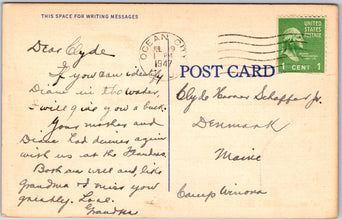 THIS SPACE FOR WRITING MESSAGES
Dear Clyde
If you can identify
Diane in the water,
I will give you a buck.
Your mother and
Diane had dinner again
with us at the Flanders.
Both are well and, like
Grandma & I miss you
greatly. Love.
Grandpa
OCEAN CITY
JUL 9
PM
1947
UNITED
STATES
POSTAGE
1 CENT 1
POST CARD
Clyde Schaffer Jr.
Denmark
Maine
Camp Winona